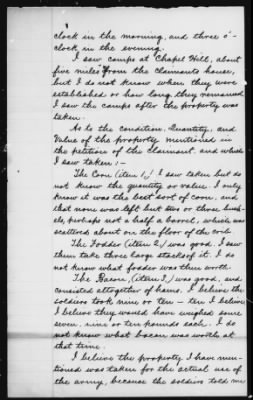 clock in the morning, and three o'-
clock in the evening.
I saw camps at Chapel Hill, about
five miles from the claimants house,
but I do not know when they were
established or how long they remained
I saw the camps after the property was
taken.
As to the condition, Quantity, and
Value of the property mentioned in
the petition of the claimant and which
I saw taken:-
The Corn (item 1,) I saw taken but do
not know the quantity or value. I only
know it was the best sort of corn, and
that none was left but two or three bush-
els, perhaps not a half a barrel, which was
scattered about on the floor of the crib.
The Fodder (item 2,) was good. I saw
them take three stacks of it. I do
not know what fodder was then worth.
The Bacon, (item 3,) was good, and
consisted altogether of hams. I believe the
soldiers took nine or ten - ten I believe
I believe they would have weighed some
seven, nine or ten pounds each. I do
not know what bacon was worth at
that time.
I believe the property I have men-
tioned was taken for the actual use of
the army, because the soldiers told me